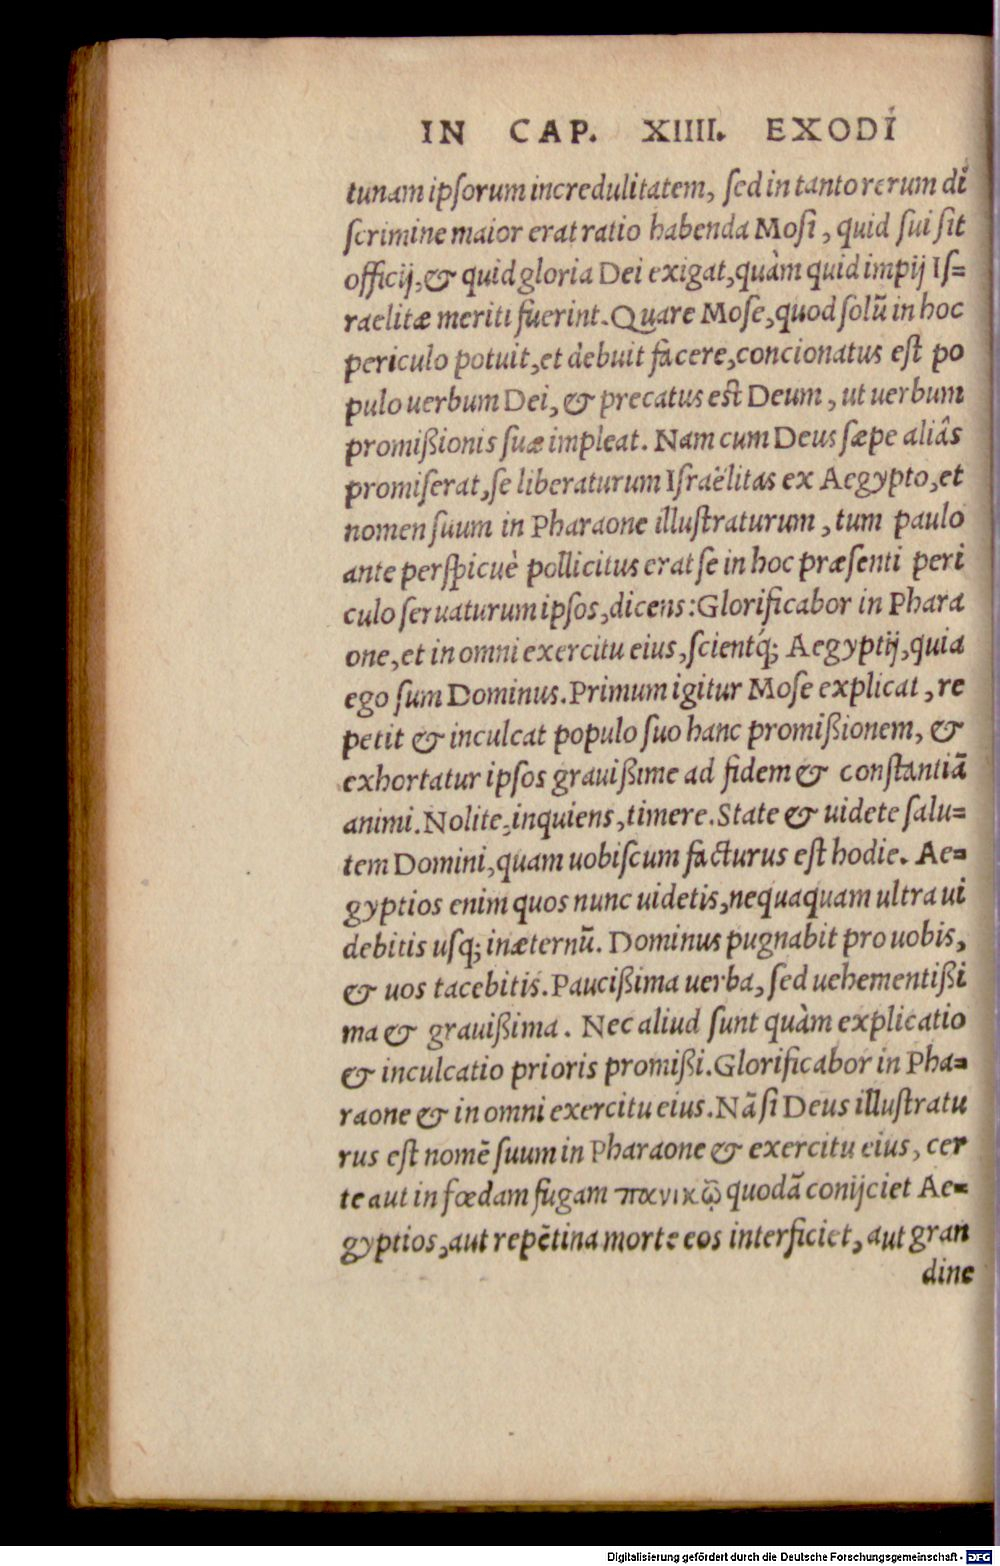 IN CAP. XIIII. EXODI
tunam ipſorum incredulitatem, ſed in tanto rerum di
ſcrimine maior erat ratio habenda Moſi, quid ſui ſit
officij, & quid gloria Dei exigat, quàm quid impij Iſ=
raelitæ meriti fuerint. Quare Moſe, quod ſolũ in hoc
periculo potuit, et debuit facere, concionatus eſt po
pulo uerbum Dei, & precatus est Deum, ut uerbum
promißionis ſuæ impleat. Nam cum Deus ſæpe aliâs
promiſerat, ſe liberaturum Iſraëlitas ex Aegypto, et
nomen ſuum in Pharaone illuſtraturum, tum paulo
ante perſpicuè pollicitus erat ſe in hoc præſenti peri
culo ſeruaturum ipſos, dicens: Glorificabor in Phara
one, et in omni exercitu eius, ſcientq́; Aegyptij, quia
ego ſum Dominus. Primum igitur Moſe explicat, re
petit & inculcat populo ſuo hanc promißionem, &
exhortatur ipſos grauißime ad fidem & conſtantiã
animi. Nolite, inquiens, timere. State & uidete ſalu=
tem Domini, quam uobiſcum facturus eſt hodie. Ae=
gyptios enim quos nunc uidetis, nequaquam ultra ui
debitis uſq; in æternũ. Dominus pugnabit pro uobis,
& uos tacebitis. Paucißima uerba, ſed uehementißi
ma & grauißima. Nec aliud ſunt quàm explicatio
& inculcatio prioris promißi. Glorificabor in Pha=
raone & in omni exercitu eius. Nã ſi Deus illuſtratu
rus eſt nomẽ ſuum in Pharaone & exercitu eius, cer
te aut in fœdam fugam πανικῷ quodã conijciet Ae=
gyptios, aut repẽtina morte eos interficiet, aut gran
dine
Digitalisierung gefördert durch die Deutsche Forschungsgemeinschaft - DFG